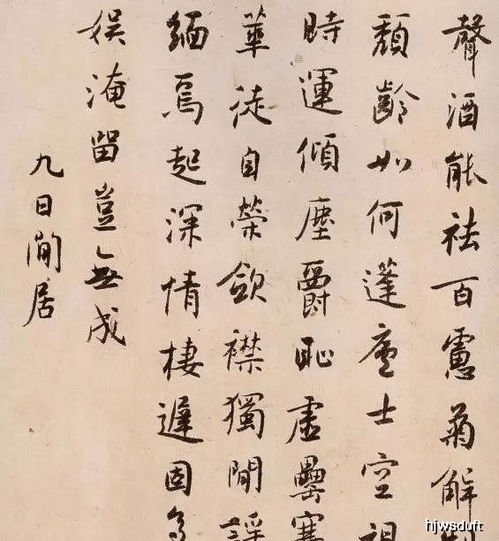 聲酒能祛百慮菊解制
頹齡如何蓬廬士空視
時運傾塵爵恥虛罍寒
華徒自榮斂襟獨閒謠
緬焉起深情棲遲固多
娛淹留豈無成
九日閒居
hjwsduft